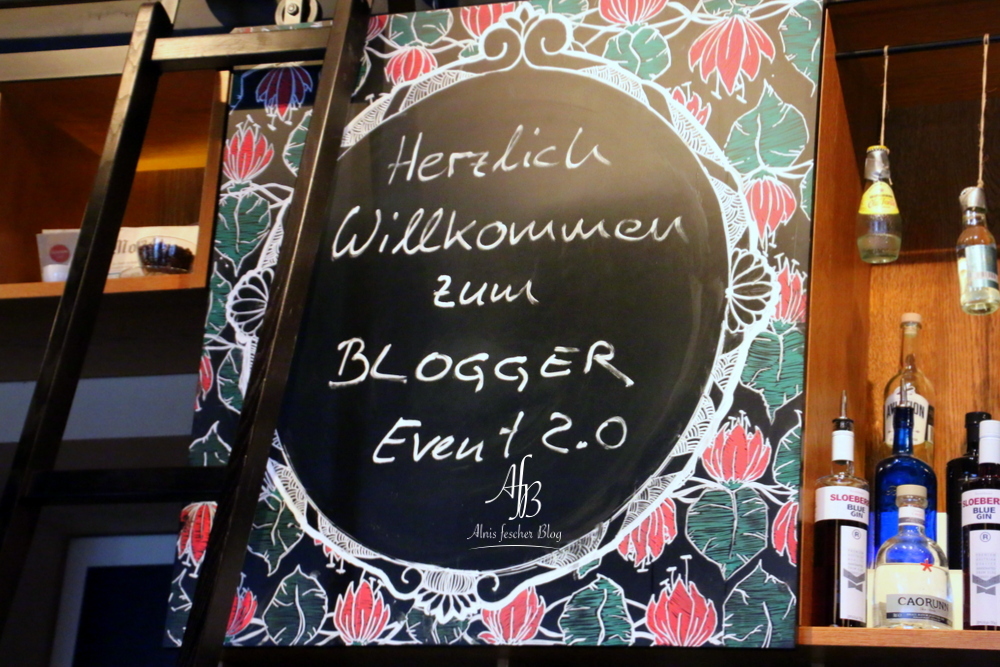 Herzlich
Willkommen
zum
BLOGGER
Event 2.0
AfB
Alnis fescher Blog
SLOEBERRY
BLUE
GIN
CAORUNN
BLUE
GIN